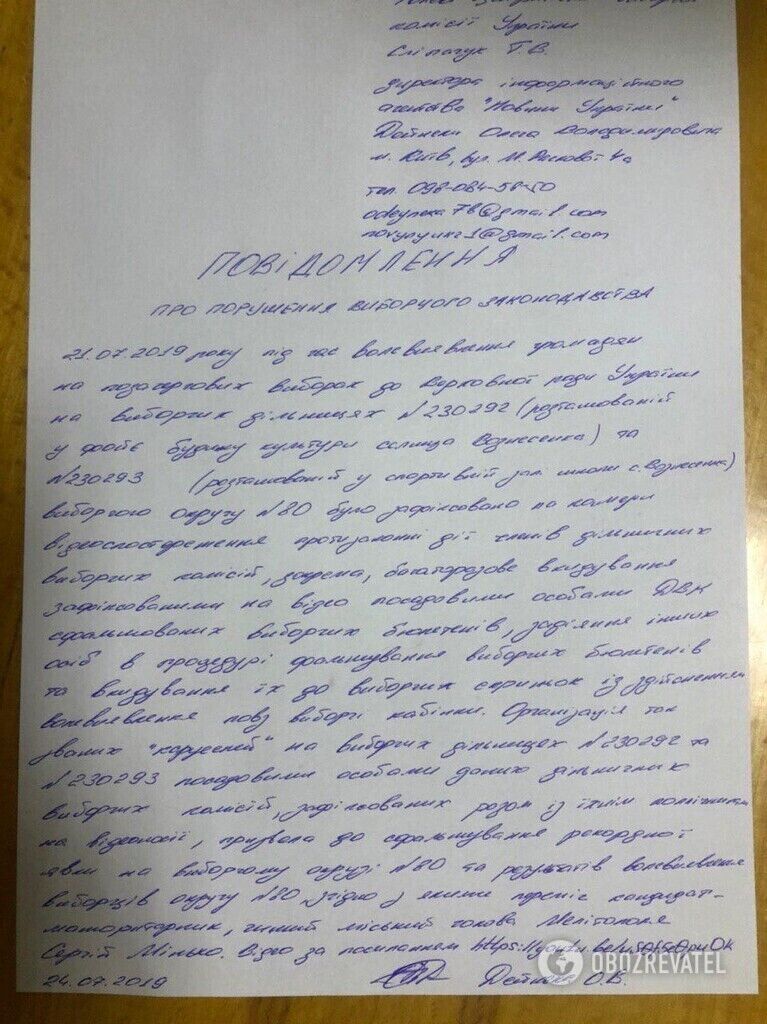 комісії України
Сліпачук Т.В.
директора інформаційного
агентства "Новини України"
Дейнеки Олега Володимировича
м. Київ, вул. М. Раскової 4а
тел. 098-084-58-50
odeyneka78@gmail.com
ПОВІДОМЛЕННЯ
ПРО ПОРУШЕННЯ ВИБОРЧОГО ЗАКОНОДАВСТВА
21.07.2019 року під час волевиявлення громадян
на позачергових виборах до Верховної ради України
на виборчих дільницях №230292 (розташованій
у фойє будинку культури селища Вознесенка) та
№230293 (розташованій у спортивній залі школи с. Вознесенка)
виборчого округу №80 було зафіксовано на камери
відеоспостереження протизаконні дії членів дільничних
виборчих комісій, зокрема, багаторазове вкидування
зафіксованими на відео посадовими особами ДВК
сфальшованих виборчих бюлетенів, задіяння інших
осіб в процедурі фальшування виборчих бюлетенів
та вкидування їх до виборчих скриньок із здійсненням
волевиявлення повз виборчі кабінки. Організація так
званих "каруселей" на виборчих дільницях №230292 та
№230293 посадовими особами даних дільничних
виборчих комісій, зафіксованих разом із їхнім
на відеоносії, призвела до сфальшування рекордної
явки на виборчому окрузі №80 та результатів волевиявлення
виборців округу №80 згідно з якими переміг кандидат-
мажоритарник, міський голова Мелітополя
Сергій Мінько. Відео за посиланням
24.07.2019 Дейнека О.В.
OBOZREVATEL